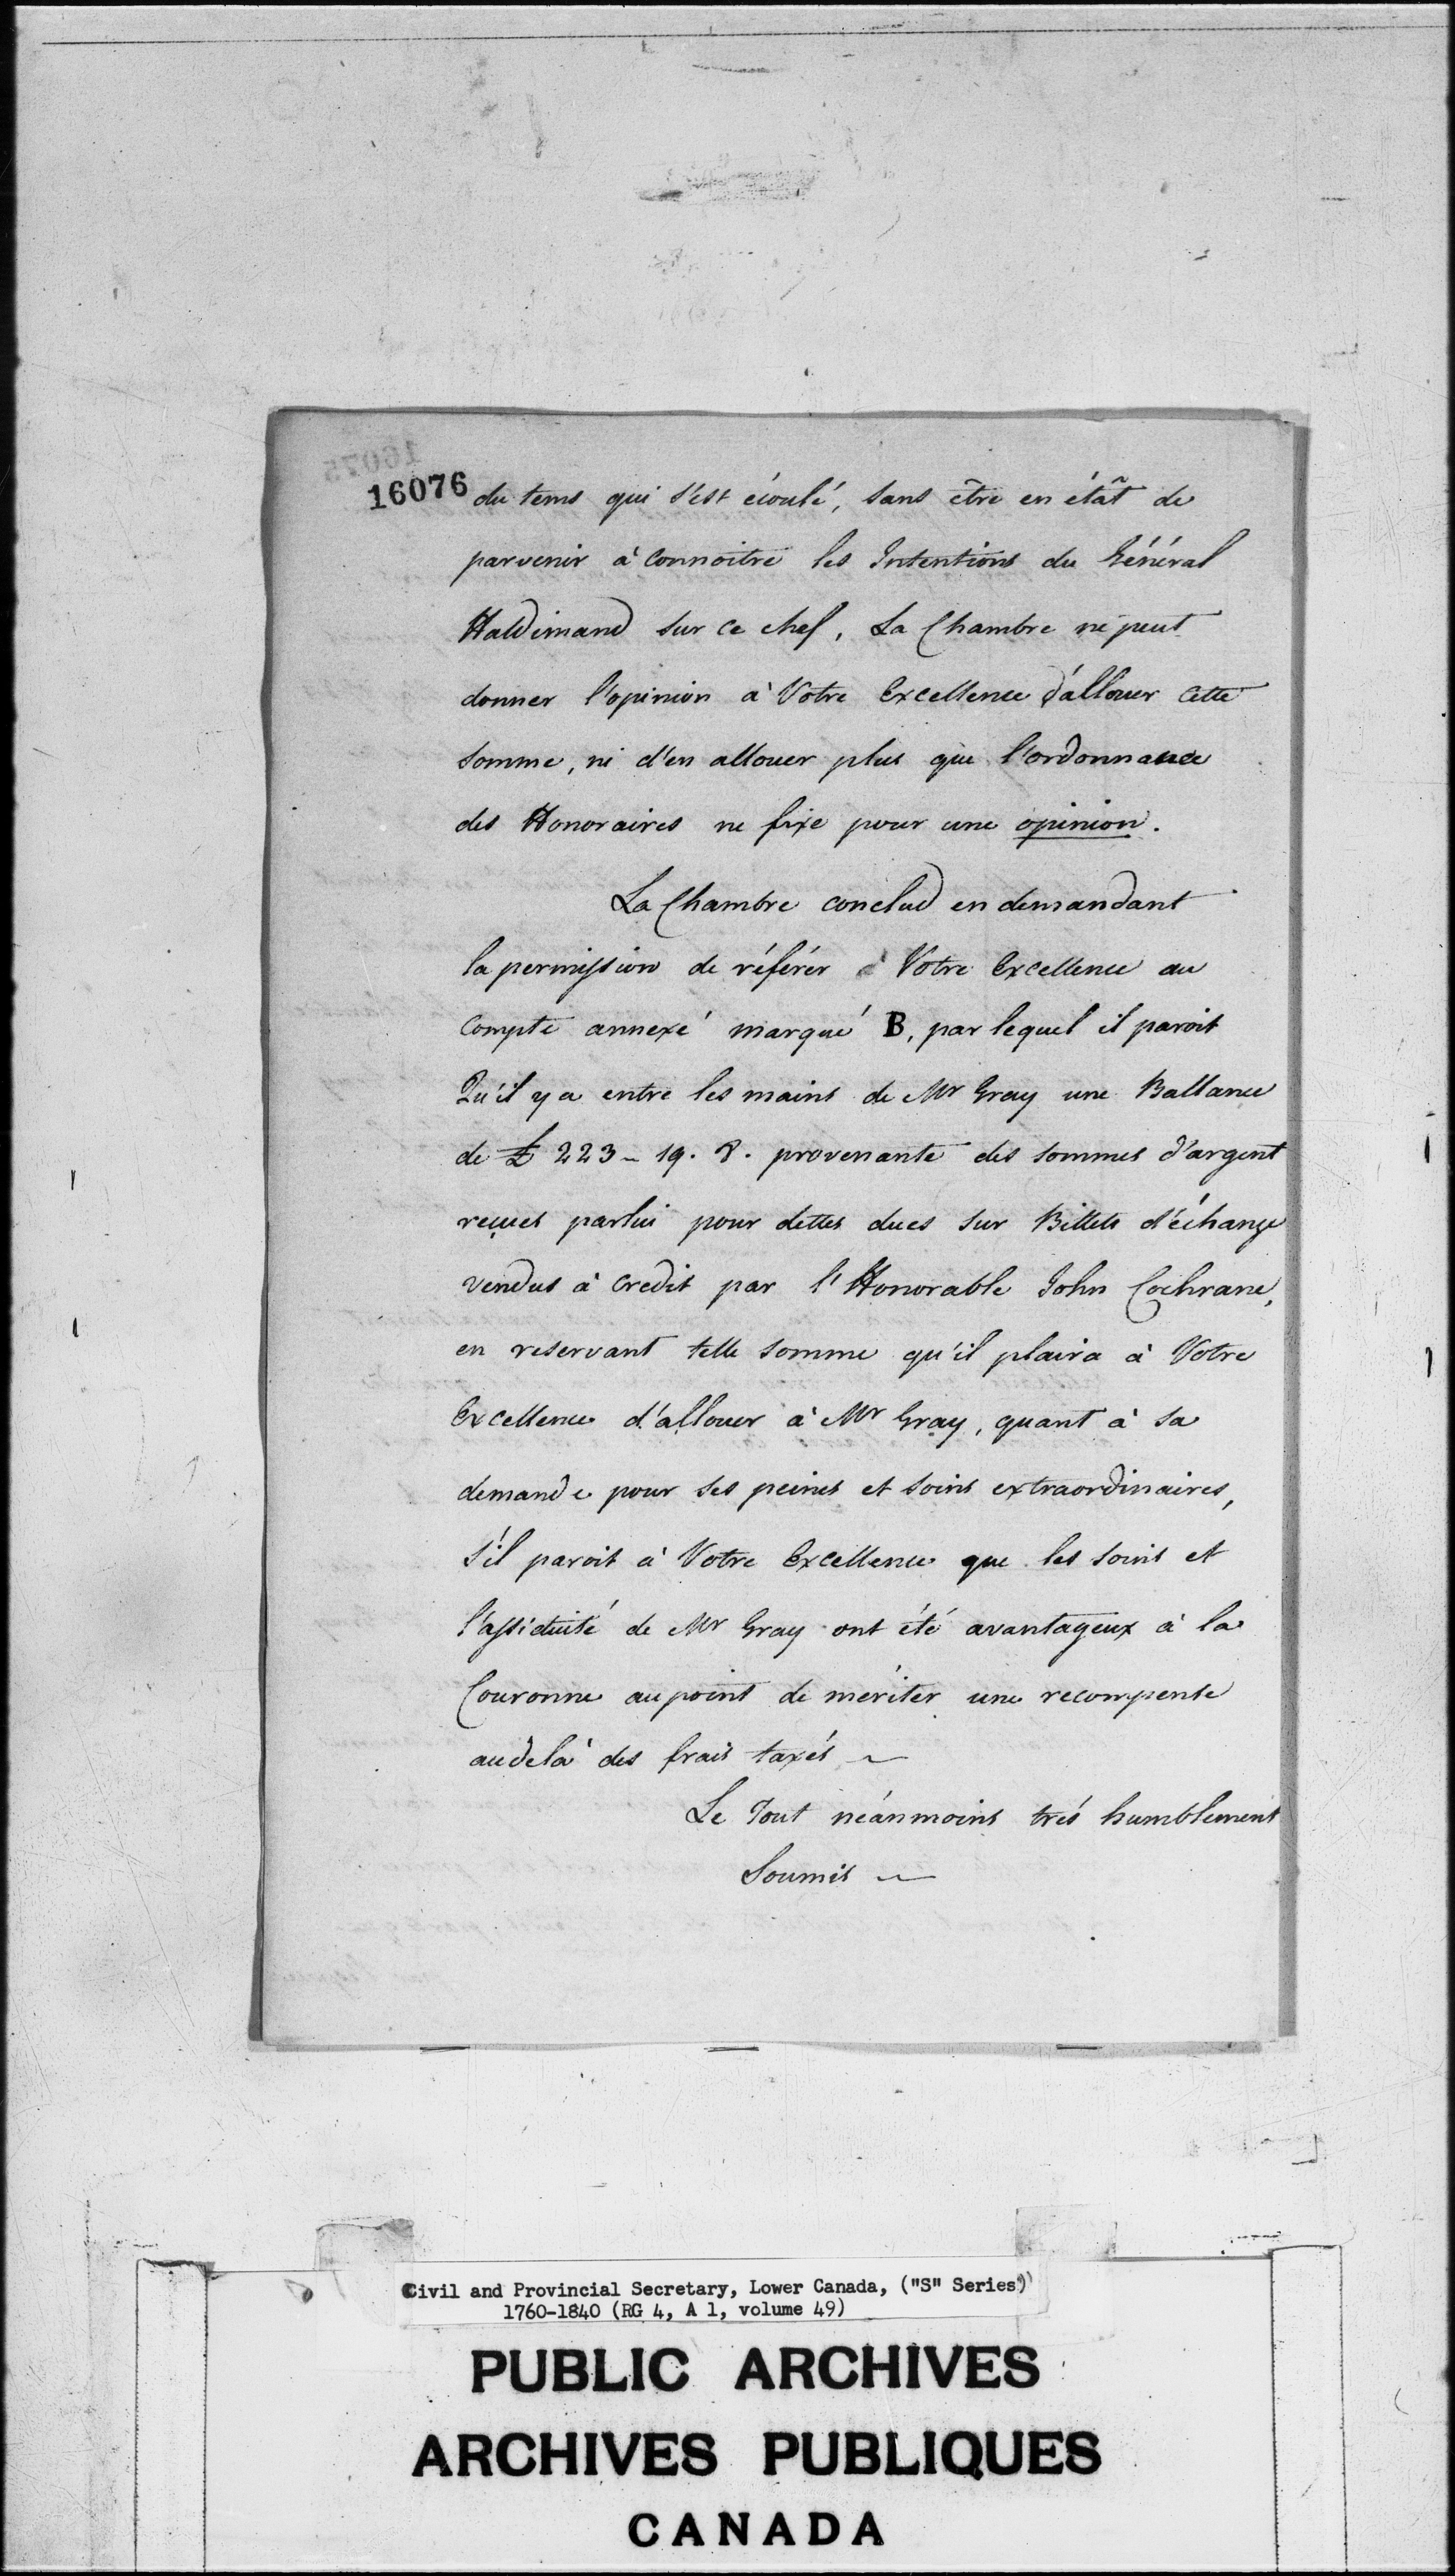 16075
16076 du tems qui s'est écoulé, sans être en étât de
parvenir à connoitre les Intentions du Général
Haldimand sur ce chef, La Chambre ne peut
donner l'opinion à Votre Excellence d'allouer cette
somme, ni d'en allouer plus que l'ordonnance
des Honoraires ne fixe pour une opinion.
La Chambre conclud en demandant
la permission de référer à Votre Excellence au
Compte annexé marqué B, par lequel il paroit
Qu'il y a entre les mains de Mr Gray une Ballance
de £ 223 - 19. 8. provenante des sommes d'argent
reçues par lui pour dettes dues sur Billets d'échange
vendus à credit par l'Honorable John Cochrane,
en reservant telle somme qu'il plaira à Votre
Excellence d'allouer à Mr Gray, quant à sa
demande pour ses peines et soins extraordinaires,
s'il paroit à Votre Excellence que les soins et
l'assiduité de Mr Gray ont été avantageux à la
Couronne au point de mériter une recompense
audelà des frais taxés ~
Le Tout néánmoins trés humblement
Soumis ~
Civil and Provincial Secretary, Lower Canada, ("S" Series)
1760-1840 (RG 4, A 1, volume 49)
PUBLIC ARCHIVES
ARCHIVES PUBLIQUES
CANADA